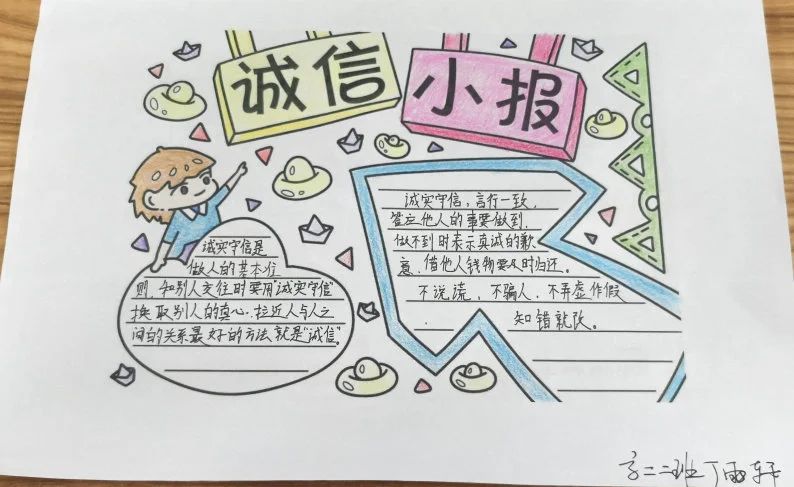 诚信
小报
诚实守信是
做人的基本位
则,和别人交往时要用"诚实守信"
换取别人的真心.拉近人与人之
间的关系最好的方法就是"诚信"。
诚实守信,言行一致,
答应他人的事要做到.
做不到时表示真诚的歉
意、借他人钱物要及时归还。
不说谎、不骗人、不弄虚作假
知错就改。
高二二班丁雨轩